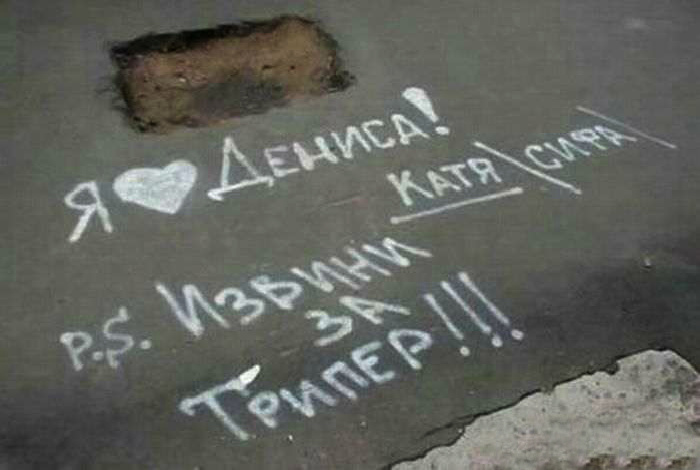 Я ❤ Дениса!
Катя\сифа\
P.S. Извини
за
Трипер!!!